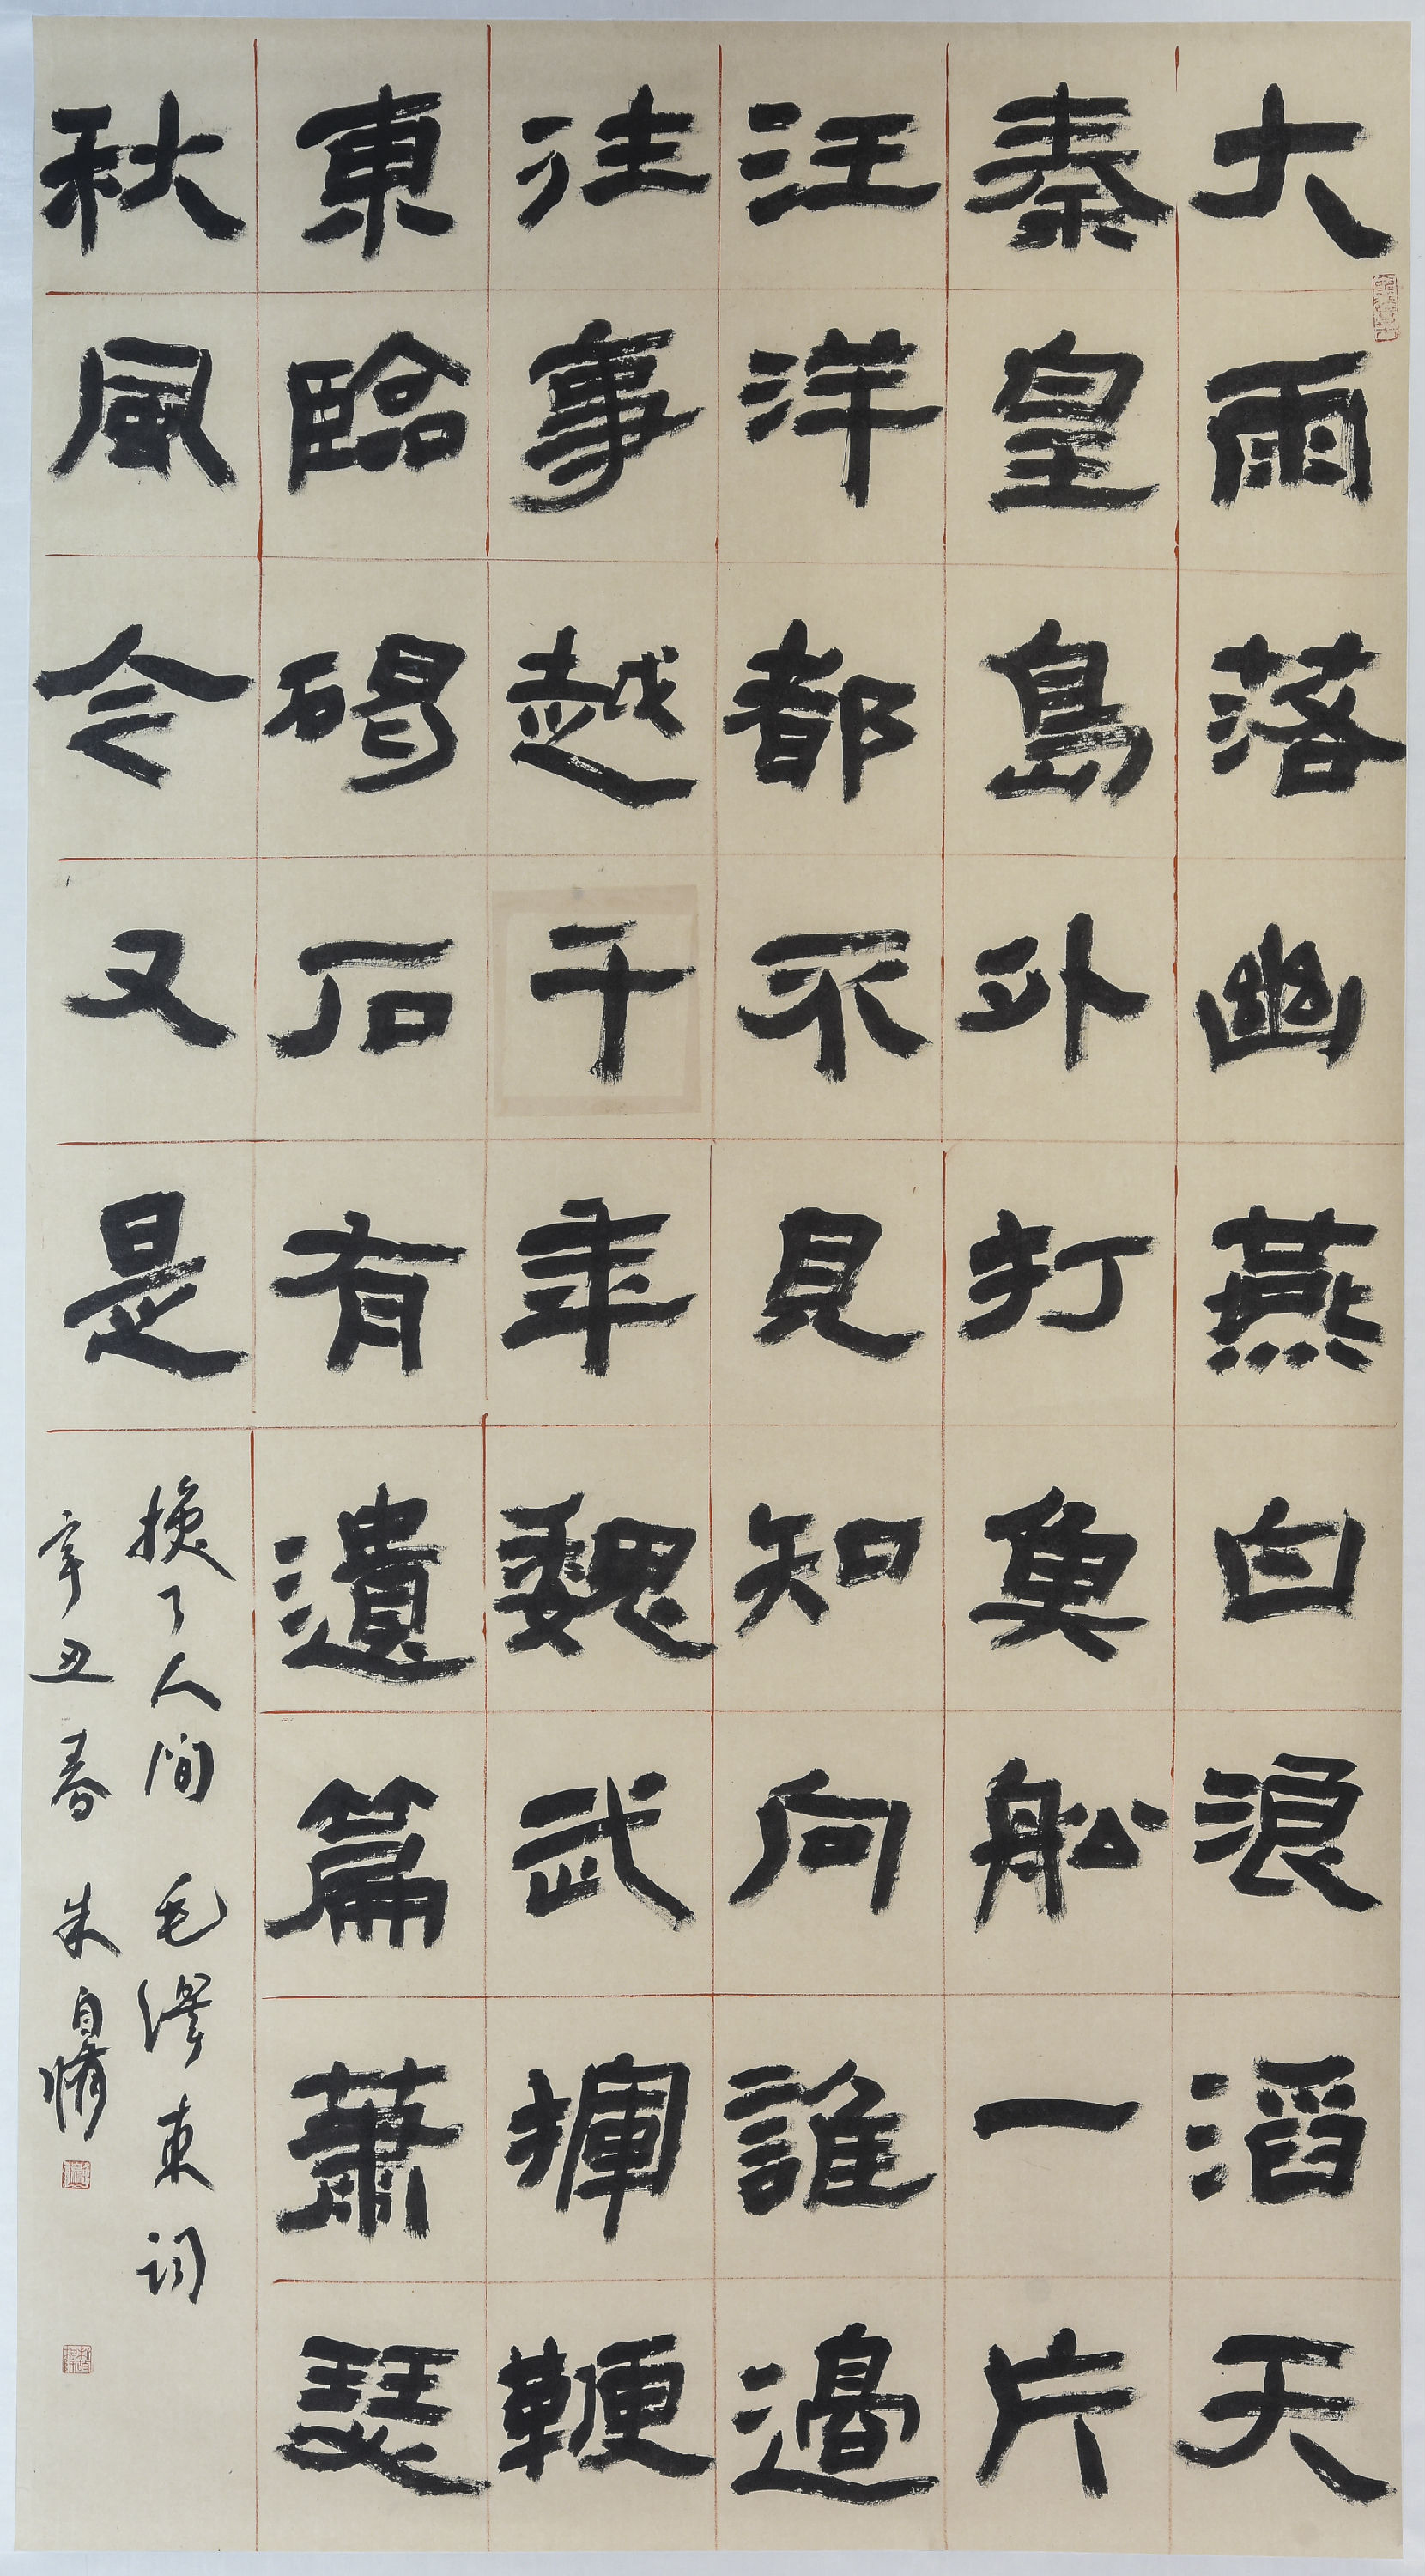 大雨落幽燕白浪滔天
秦皇島外打魚船一片
汪洋都不見知向誰邊
往事越千年魏武揮鞭
東臨碣石有遺篇蕭瑟
秋風令又是
換了人间 毛澤東词
辛丑春 朱自